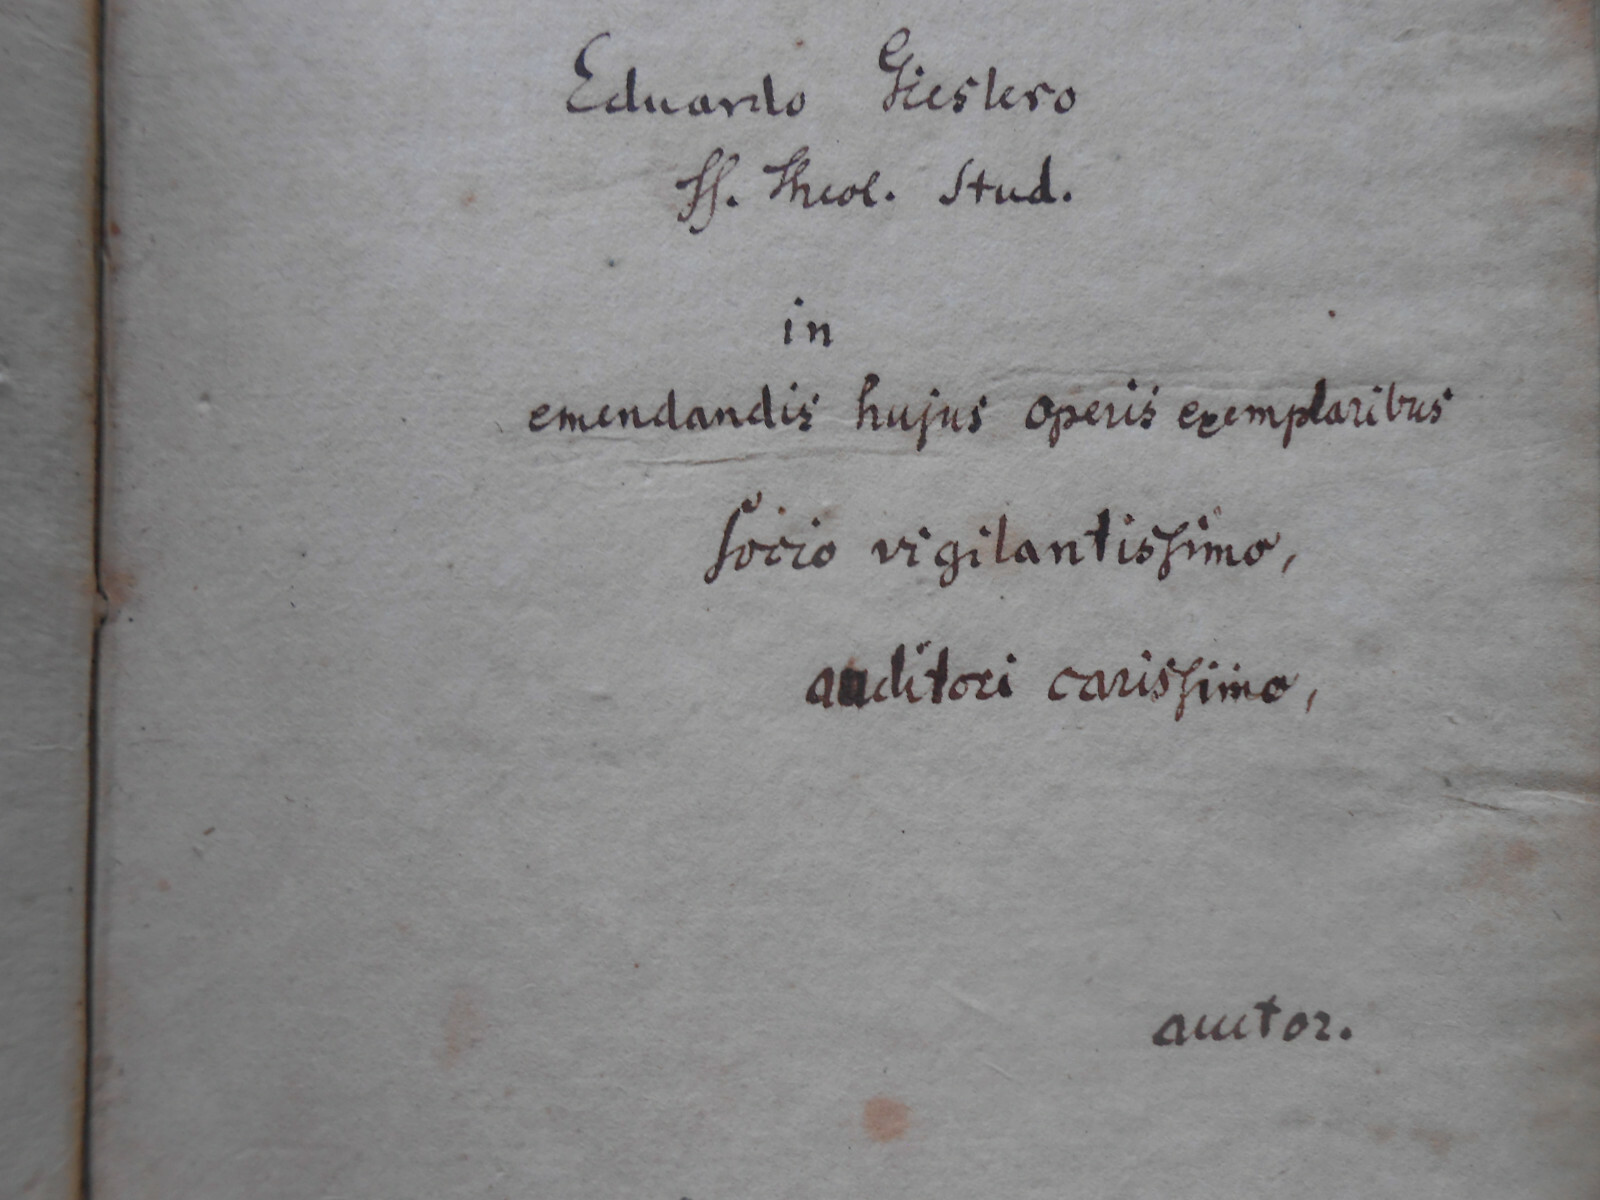 Eduardo Gieslero
ss. Theol. Stud.
in
emendandis hujus operis exemplaribus
socio vigilantissimo,
auditori carissimo,
auctor.